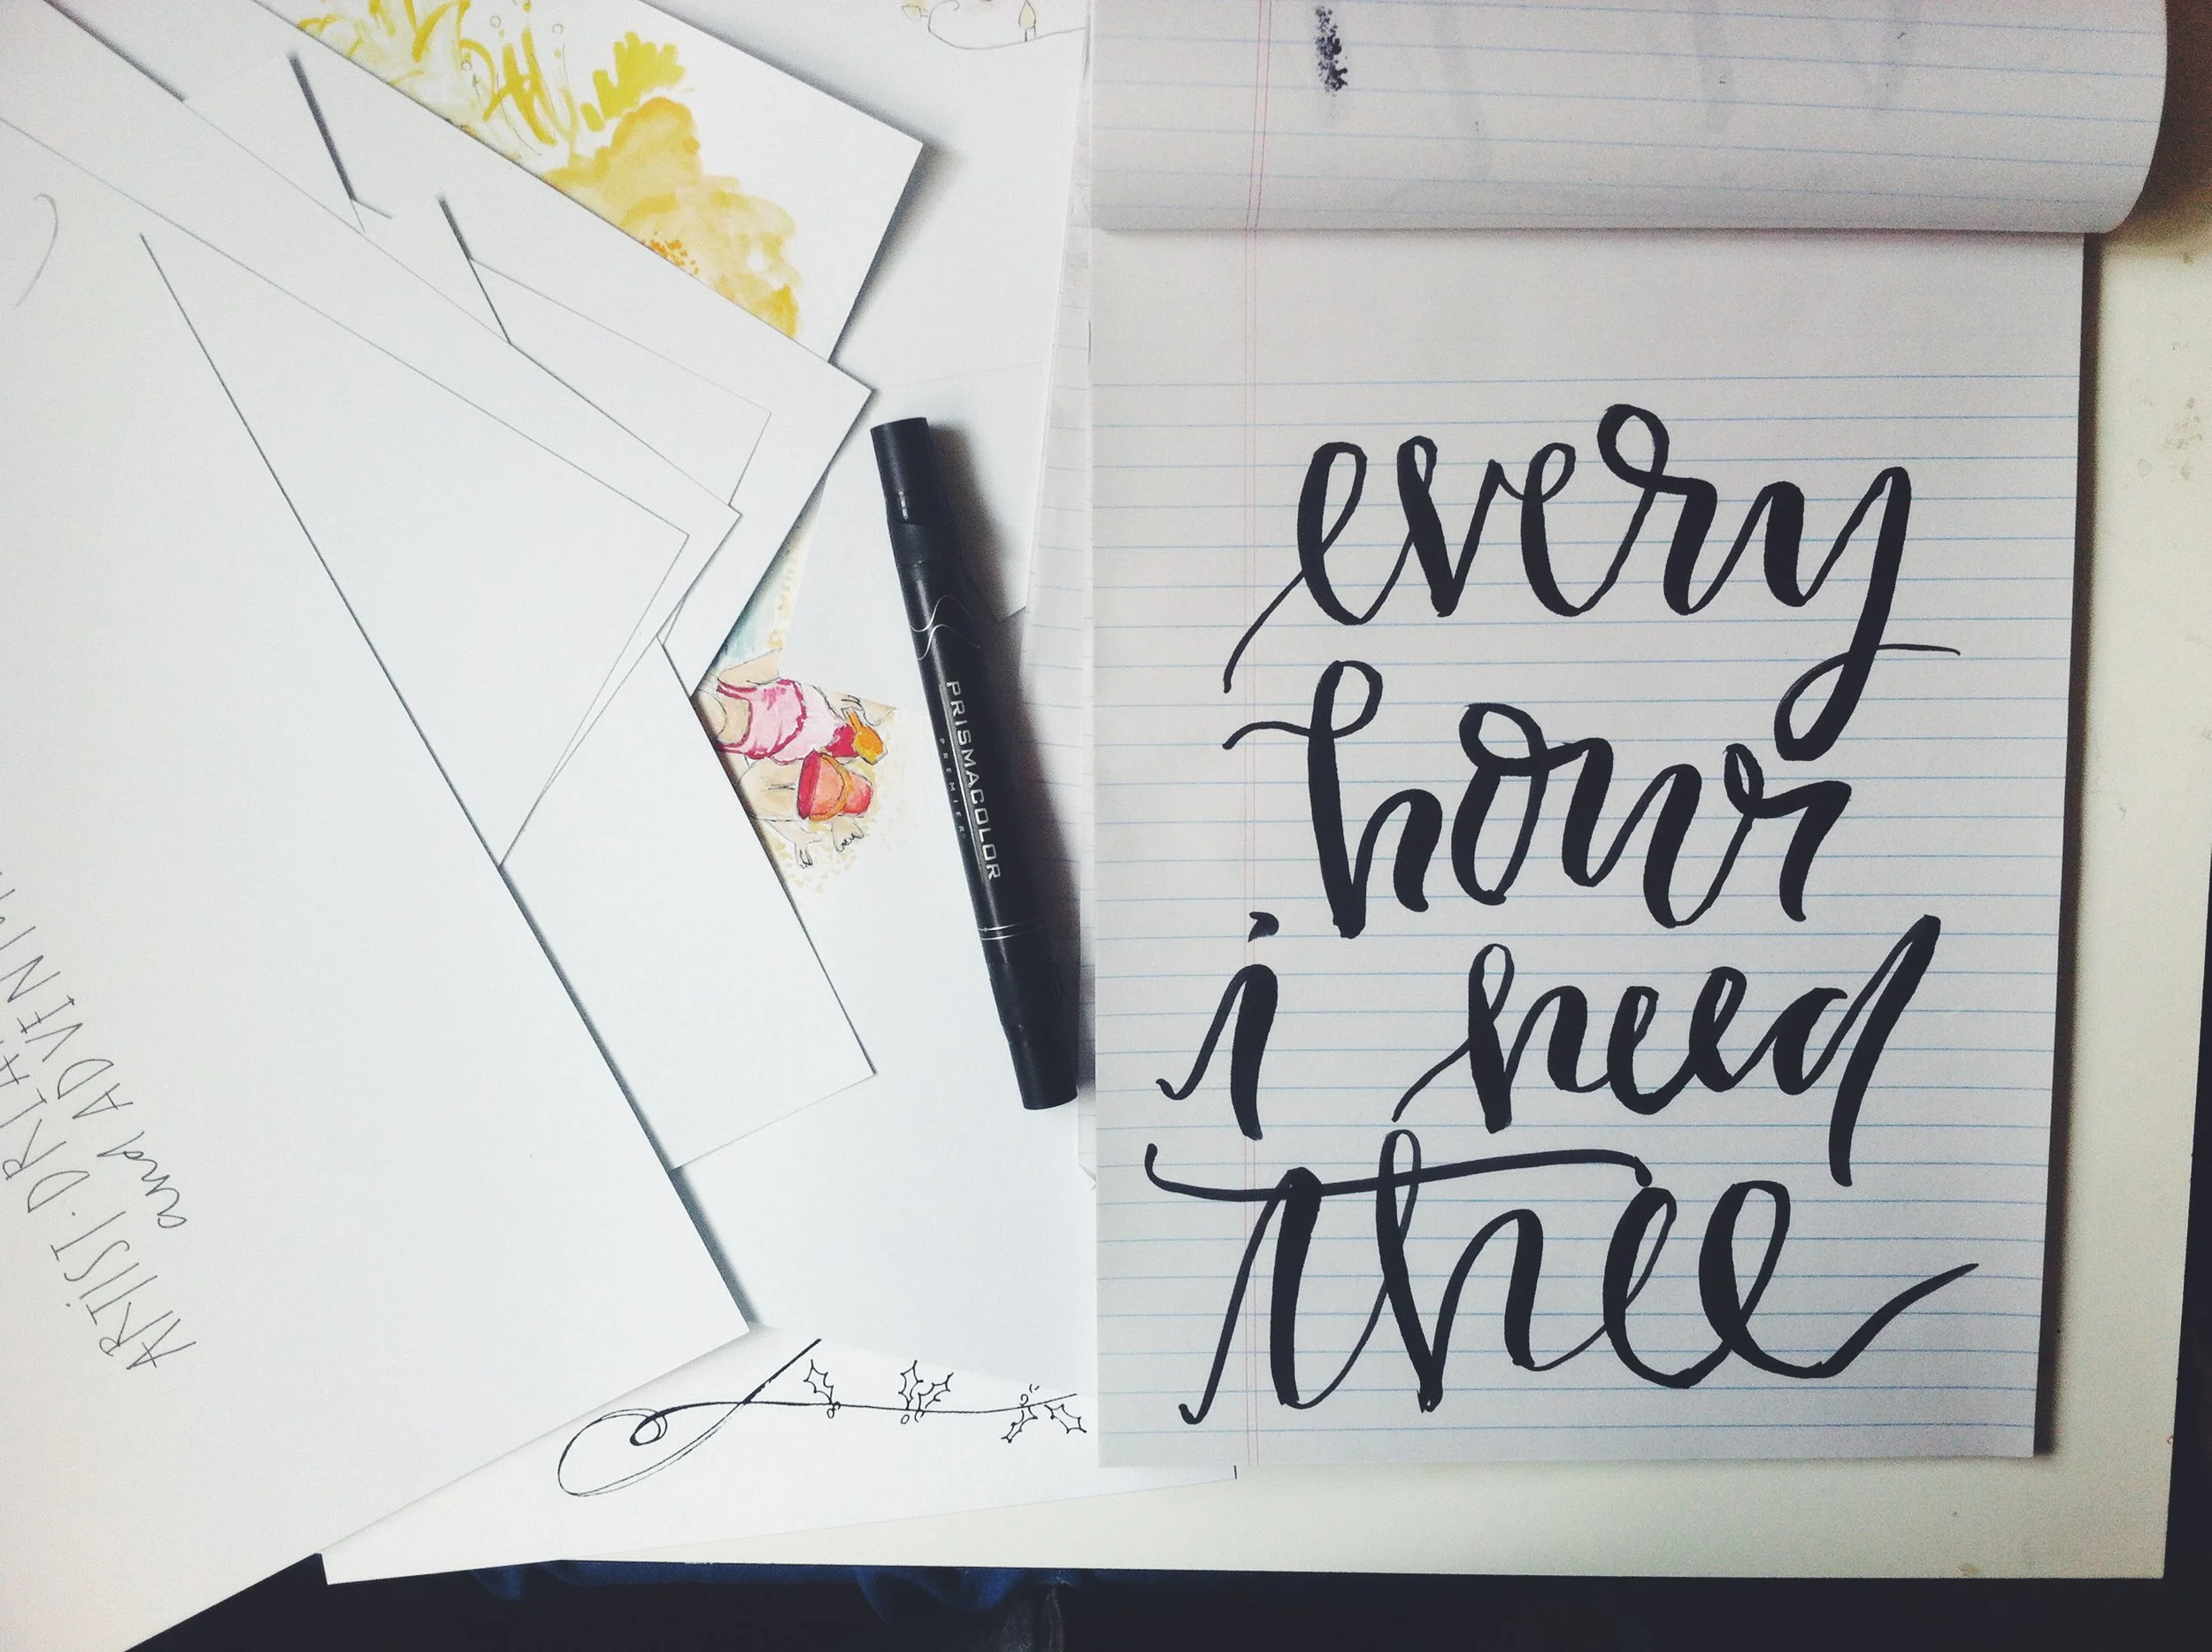 every
hour
i need
thee
PRISMACOLOR
PREMIER
ARTIST. 
and